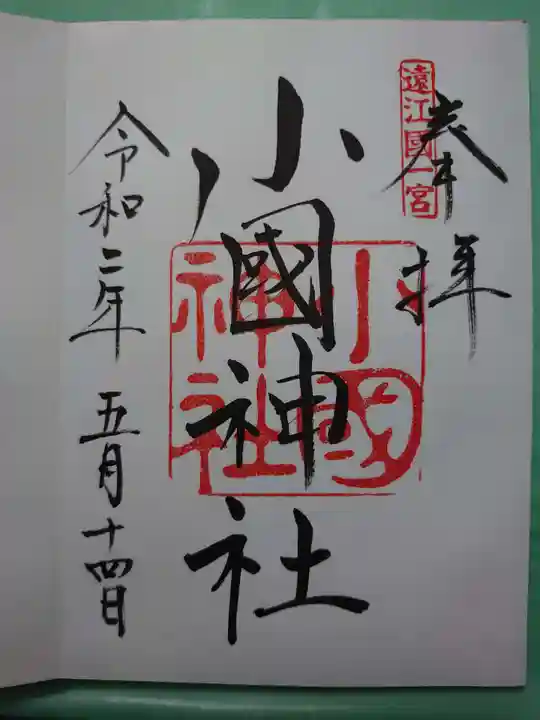 奉拝
遠江國一宮
小國神社
小國神社
令和二年五月十四日